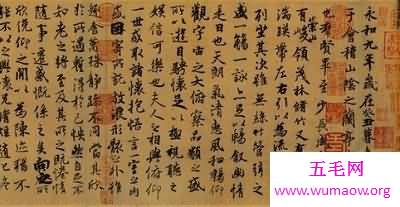 永和九年歲在癸丑
于會稽山陰之蘭亭
也羣賢畢至少長咸
崇山
有峻領茂林脩竹又有
湍暎帶左右引以為流
列坐其次雖無絲竹管弦之
盛一觴一詠亦足以暢敘幽情
是日也天朗氣清惠風和暢仰
觀宇宙之大俯察品類之盛
所以遊目騁懷足以極視聽之
娛信可樂也夫人之相與俯仰
一世或取諸懷抱悟言一室之內
或因寄所託放浪形骸之外雖
趣舍萬殊靜躁不同當其欣
於所遇蹔得於己怏然自足不
知老之將至及其所之既惓情
隨事遷感慨係之矣向之所
欣俛仰之閒以為陳迹猶不
能不以之興懷況脩短隨化終
五毛网
www.wumaow.org